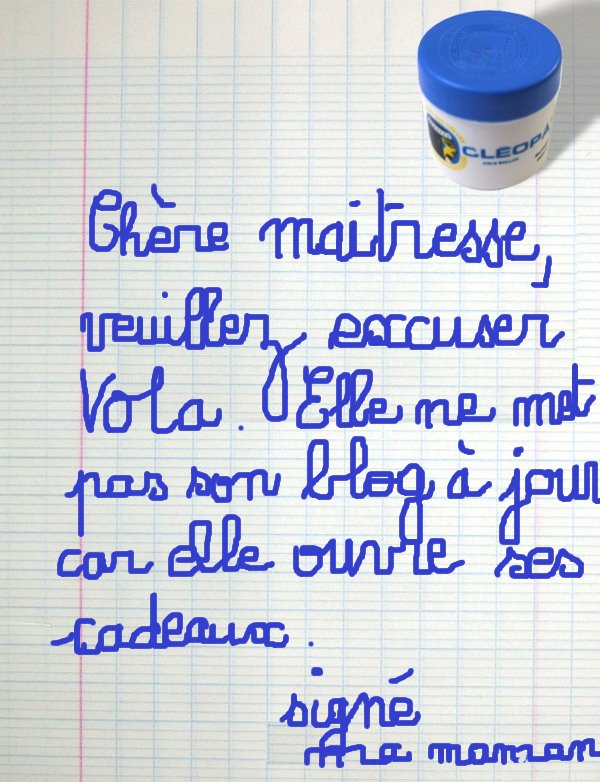 CLEOPA
Chère maitresse,
veuillez excuser
Vola. Elle ne met
pas son blog à jour
car elle ouvre ses
cadeaux.
signé
ma maman